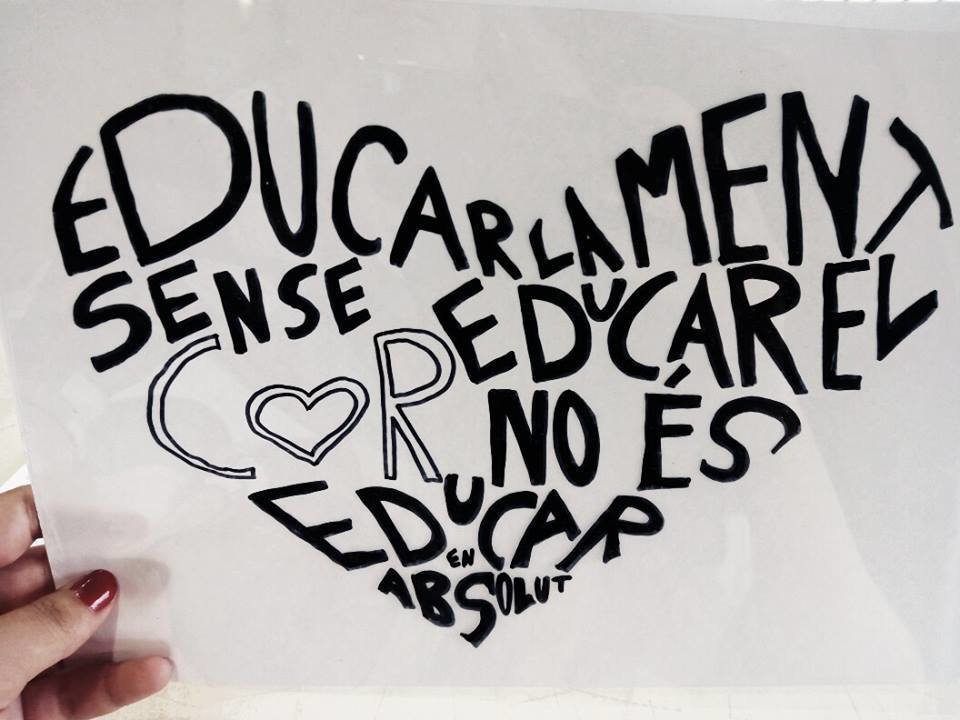 EDUCAR LA MENT
SENSE EDUCAR EL
COR NO ÉS
EDUCAR
EN
ABSOLUT